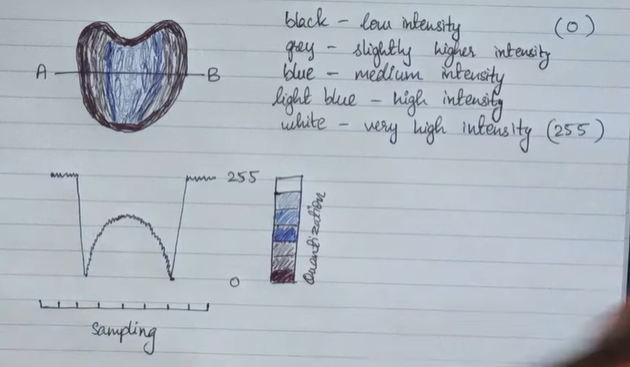 black - low intensity (0)
grey - slightly higher intensity
blue - medium intensity
light blue - high intensity
white - very high intensity (255)
A B
255
0
Quantization
Sampling